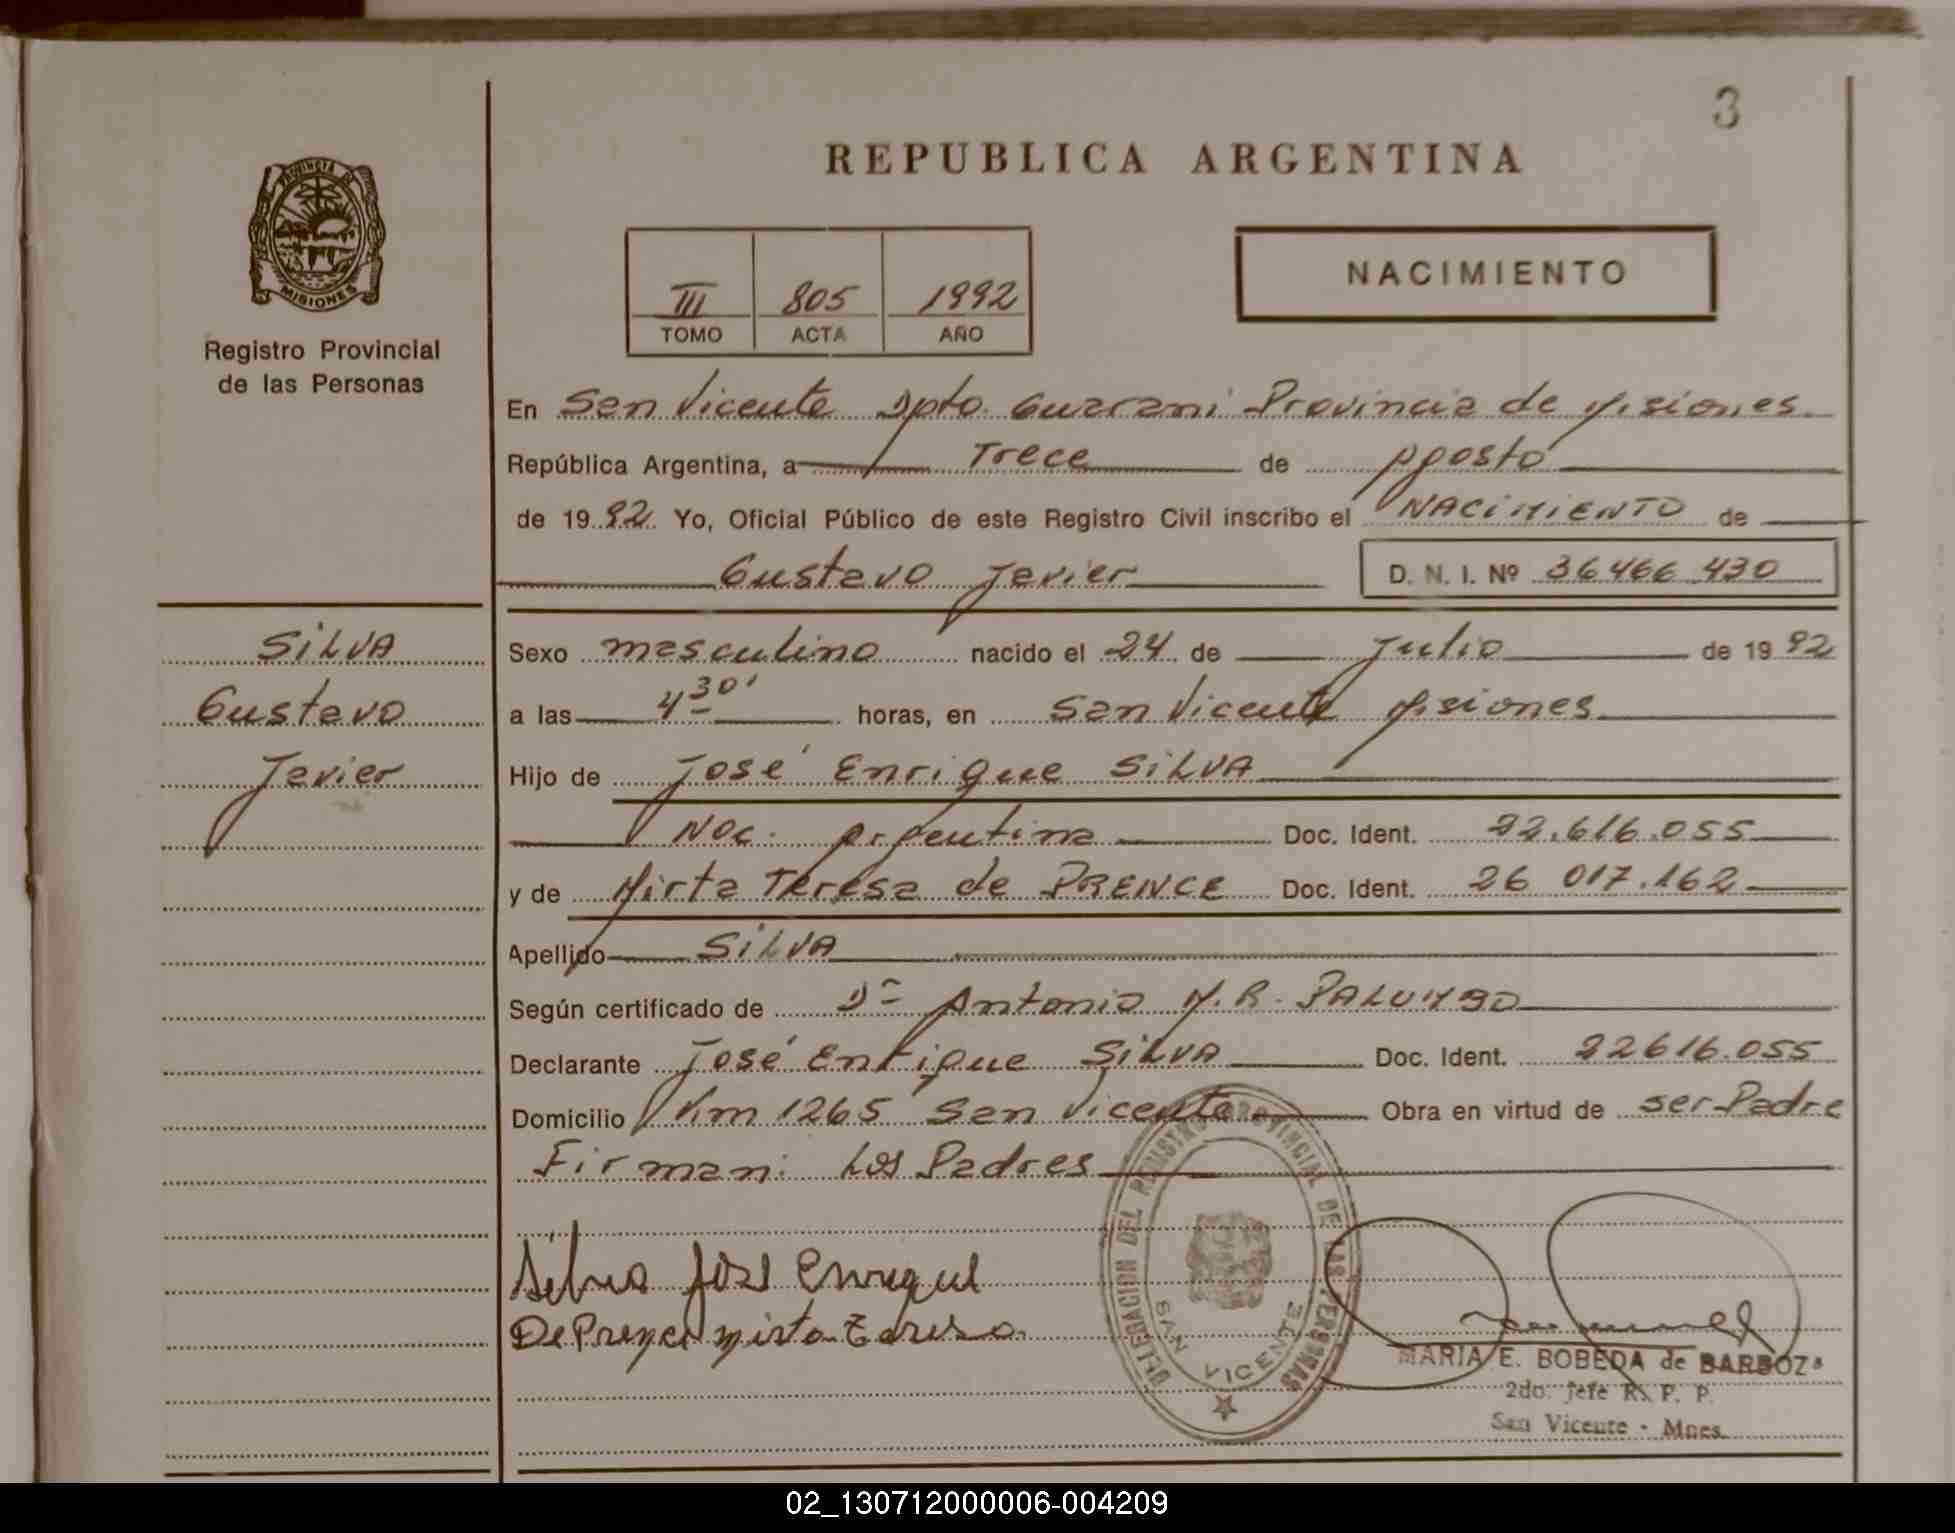 3
REPUBLICA ARGENTINA
PROVINCIA DE
MISIONES
Registro Provincial
de las Personas
III 805 1992
TOMO ACTA AÑO
NACIMIENTO
En San Vicente Dpto. Guarani Provincia de Misiones
República Argentina, a Trece de Agosto
de 1992 Yo, Oficial Público de este Registro Civil inscribo el NACIMIENTO de
Gustavo Javier D. N. I. Nº 36466 430
SILVA
Gustavo
Javier
Sexo masculino nacido el 24 de Julio de 1992
a las 4 30' horas, en San Vicente Misiones
Hijo de José Enrique SILVA
Nac. Argentina Doc. Ident. 22.616.055
y de Mirta Teresa de PRENCE Doc. Ident. 26 017.162
Apellido SILVA
Según certificado de Dr Antonio M.R. PALUMBO
Declarante José Enrique SILVA Doc. Ident. 22616.055
Domicilio Km 1265 San Vicente Obra en virtud de ser Padre
Firman: Los Padres
Silva José Enrique
De Prence Mirta Teresa
DELEGACION DEL REGISTRO PROVINCIAL DE LAS PERSONAS
SAN VICENTE
MARIA E. BOBEDA de BARBOZA
2do. Jefe R. P. P.
San Vicente - Mnes.
02_130712000006-004209